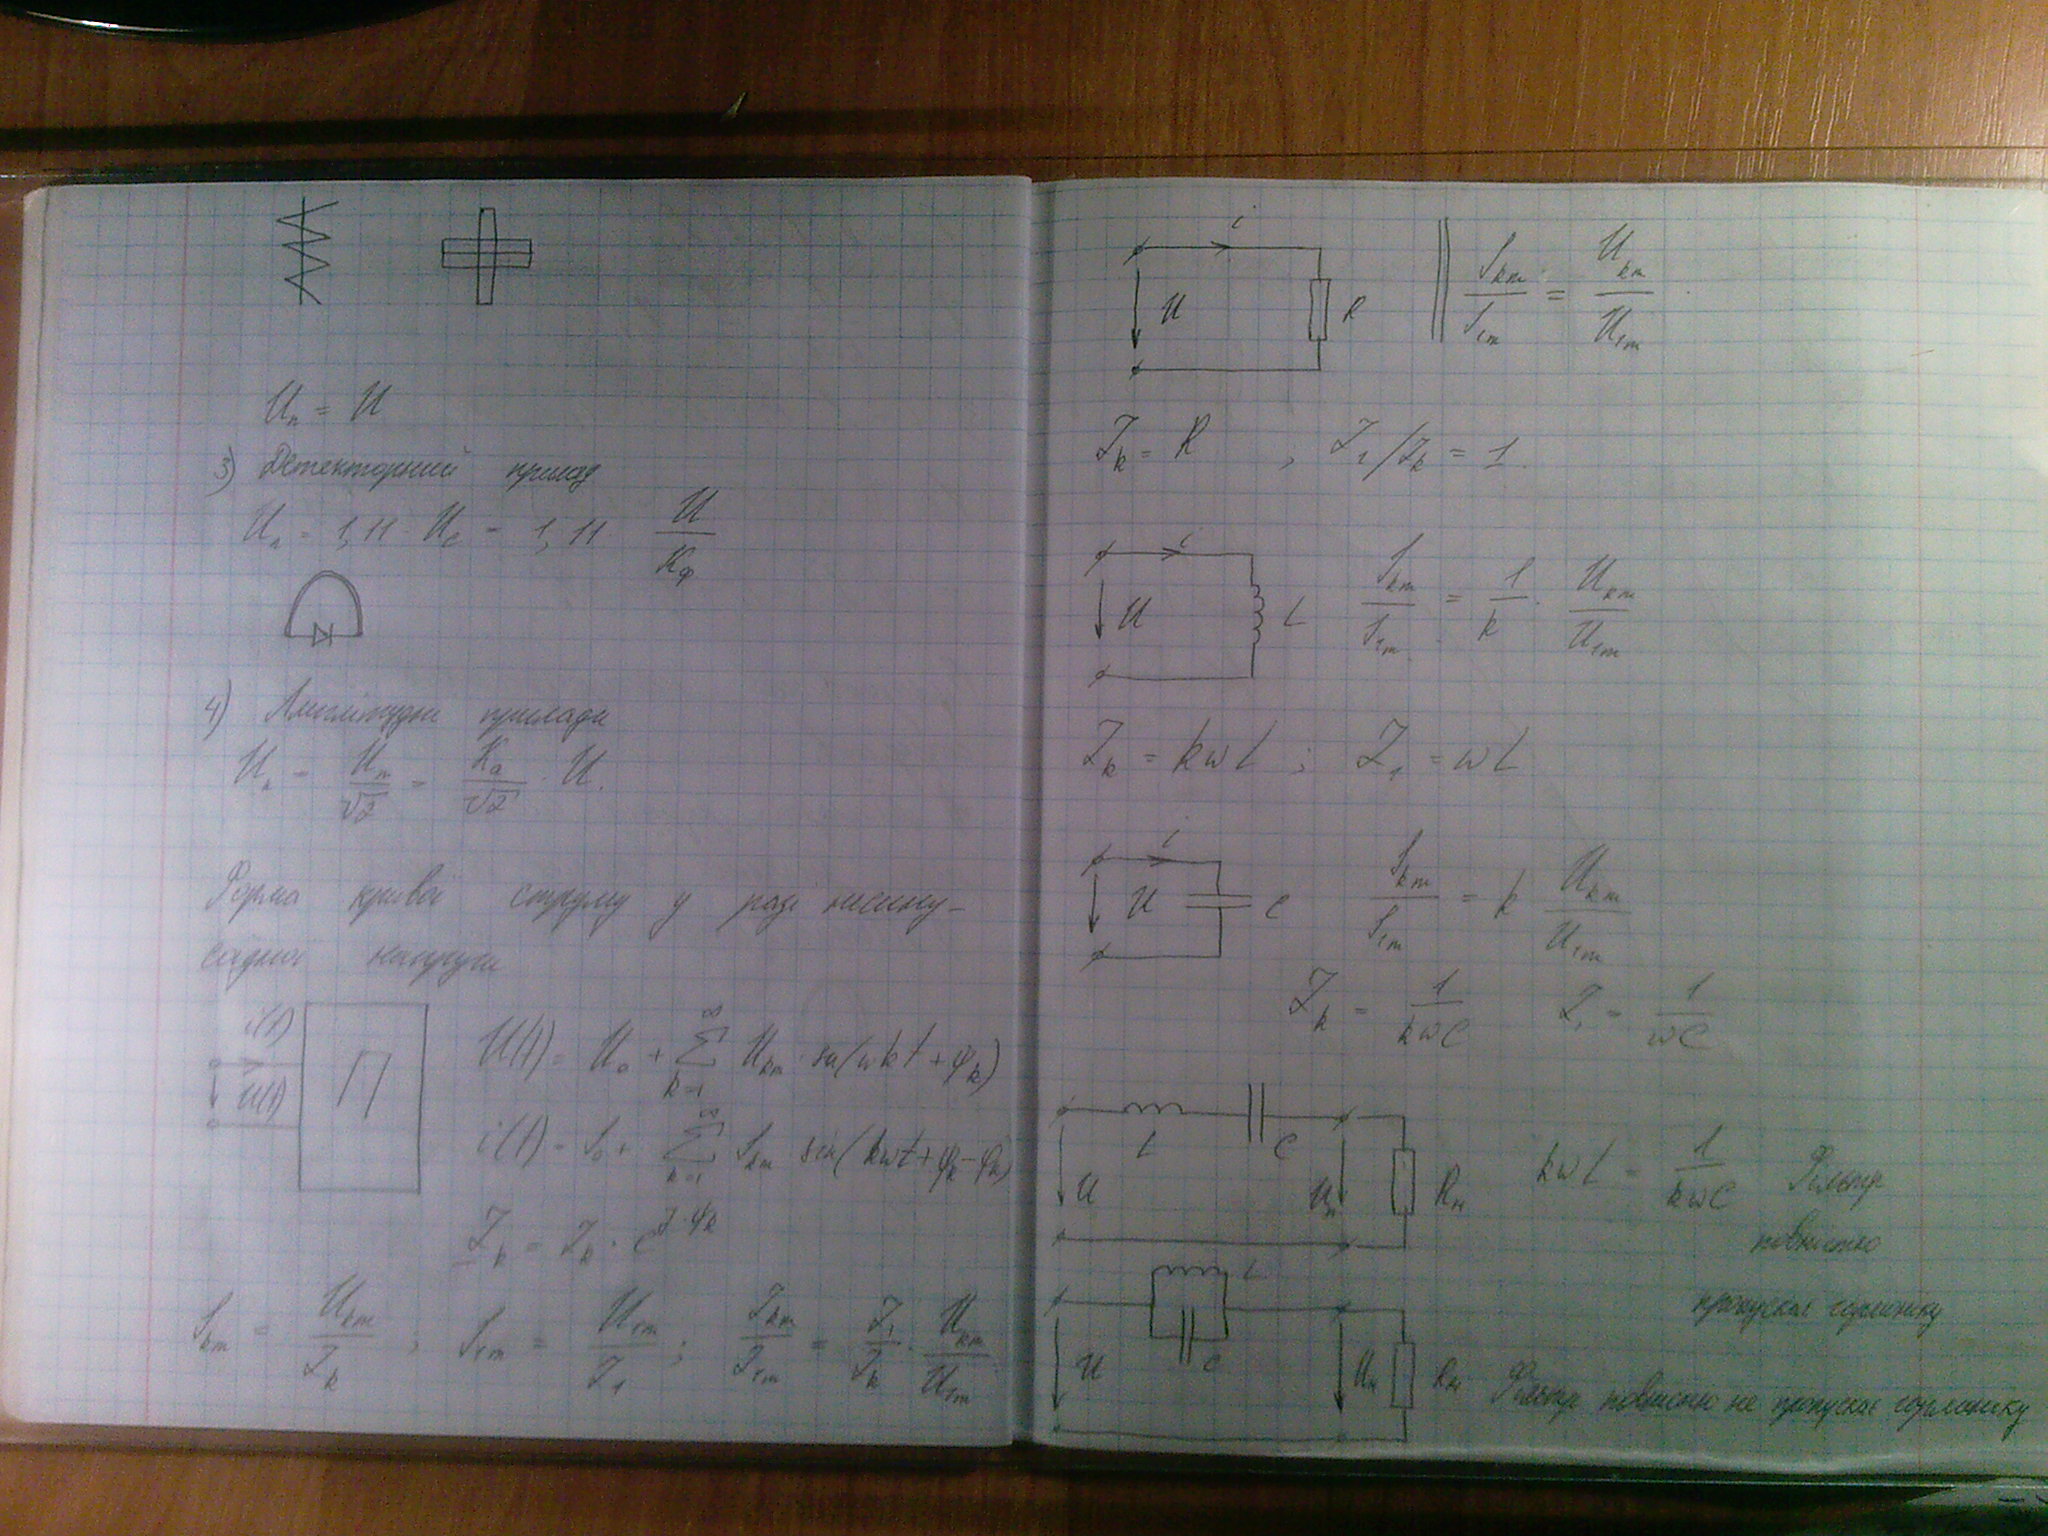 Uп = U
3) Детекторний прилад
Uп = 1,11 · Uc = 1,11 · U/Kф
4) Амплітудні прилади
Uп = Um/√2 = Ka/√2 · U.
Форма кривої струму у разі несину-
сїдної напруги
i(t)
U(t)
П
U(t) = U₀ + ∑ₖ₌₁^∞ Uₖₘ · sin(ωkt + φₖ)
i(t) = I₀ + ∑ₖ₌₁^∞ Iₖₘ sin(kωt + ψₖ - φₖ)
Zₖ = Zₖ · e^(j·φₖ)
Iₖₘ = Uₖₘ/Zₖ ; I₁ₘ = U₁ₘ/Z₁ ; Iₖₘ/I₁ₘ = Z₁/Zₖ · Uₖₘ/U₁ₘ
i
U
R
Iₖₘ/I₁ₘ = Uₖₘ/U₁ₘ
Zₖ = R , Z₁/Zₖ = 1.
i
U
L
Iₖₘ/I₁ₘ = 1/k · Uₖₘ/U₁ₘ
Zₖ = kωL ; Z₁ = ωL
i
U
C
Iₖₘ/I₁ₘ = k Uₖₘ/U₁ₘ
Zₖ = 1/kωC Z₁ = 1/ωC
L
C
U
Uн
Rн
kωL = 1/kωC Фільтр
повністю
пропускає гармоніку
L
C
U
Uн
Rн
Фільтр повністю не пропускає гармоніку